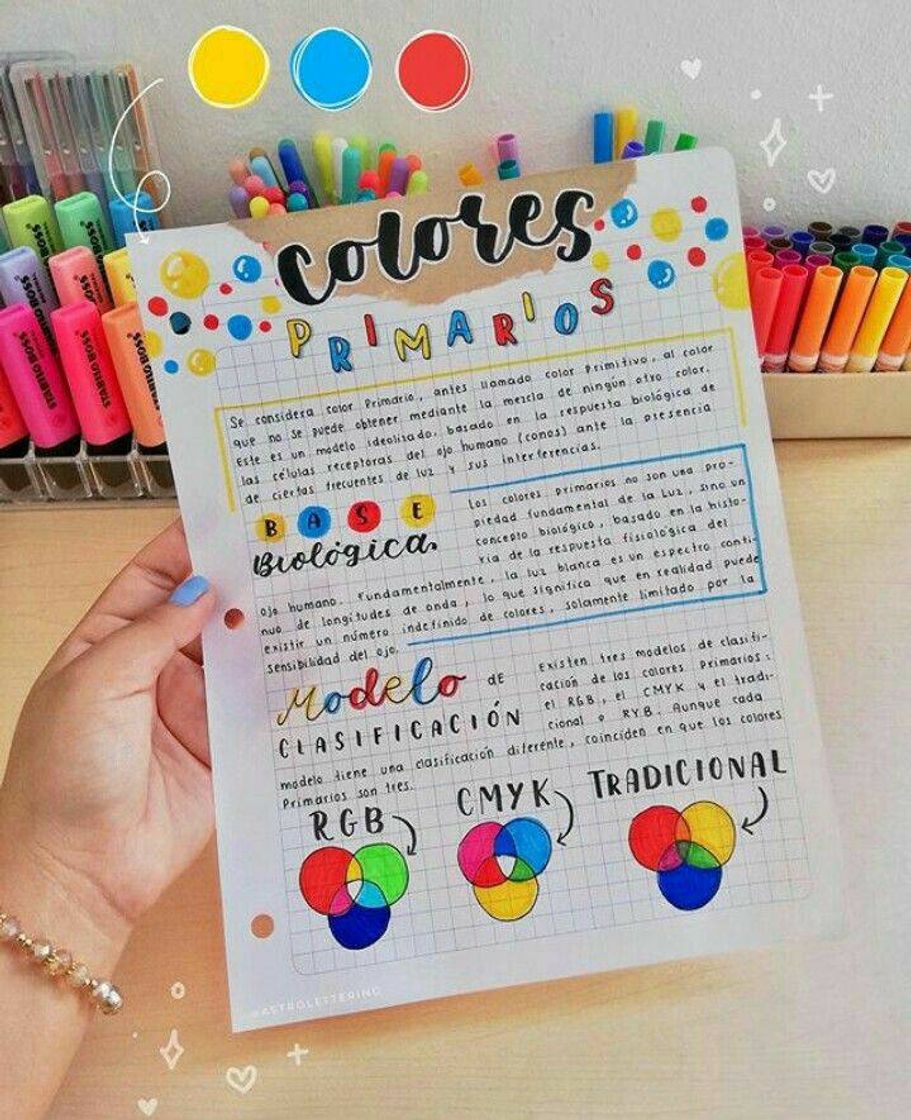 Colores
PRIMARIOS
Se considera color Primario, antes llamado color primitivo, al color
que no se puede obtener mediante la mezcla de ningún otro color.
Este es un modelo idealizado, basado en la respuesta biológica de
las células receptoras del ojo humano (conos) ante la presencia
de ciertas frecuentes de luz y sus interferencias.
BASE
Biológica.
Los colores primarios no son una pro-
piedad fundamental de la Luz, sino un
concepto biológico, basado en la histo-
ria de la respuesta fisiológica del
ojo humano. Fundamentalmente, la luz blanca es un espectro conti-
nuo de longitudes de onda, lo que significa que en realidad puede
existir un número indefinido de colores, solamente limitado por la
sensibilidad del ojo.
Modelo DE
CLASIFICACIÓN
Existen tres modelos de clasifi-
cación de los colores primarios:
el RGB, el CMYK y el tradi-
cional o RYB. Aunque cada
modelo tiene una clasificación diferente, coinciden en que los colores
Primarios son tres.
RGB
CMYK
TRADICIONAL
@ASTROLETTERING
STABILO BOSS
STABILO BOSS
STABILO BOSS